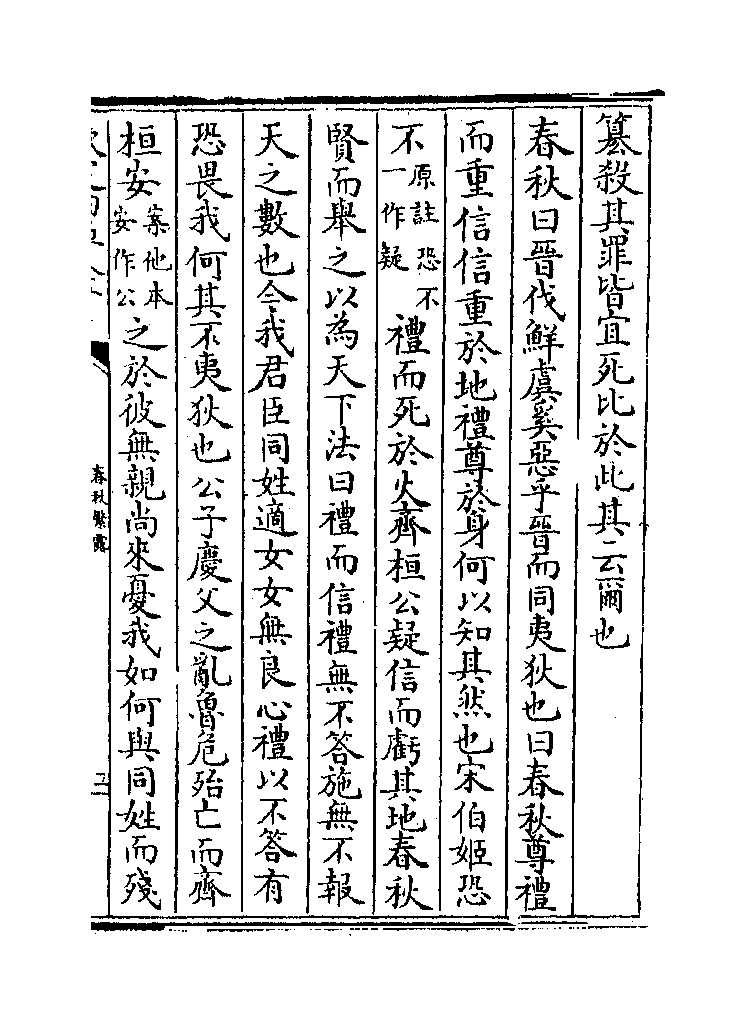 篡殺其罪皆宜死比於此其云爾也
春秋曰晉伐鮮虞奚惡乎晉而同夷狄也曰春秋尊禮
而重信信重於地禮尊於身何以知其然也宋伯姬恐
不原註恐不一作疑禮而死於火齊桓公疑信而虧其地春秋
賢而舉之以為天下法曰禮而信禮無不答施無不報
天之數也今我君臣同姓適女女無良心禮以不答有
恐畏我何其不夷狄也公子慶父之亂魯危殆亡而齊
桓安案他本安作公之於彼無親尚來憂我如何與同姓而殘
春秋繁露